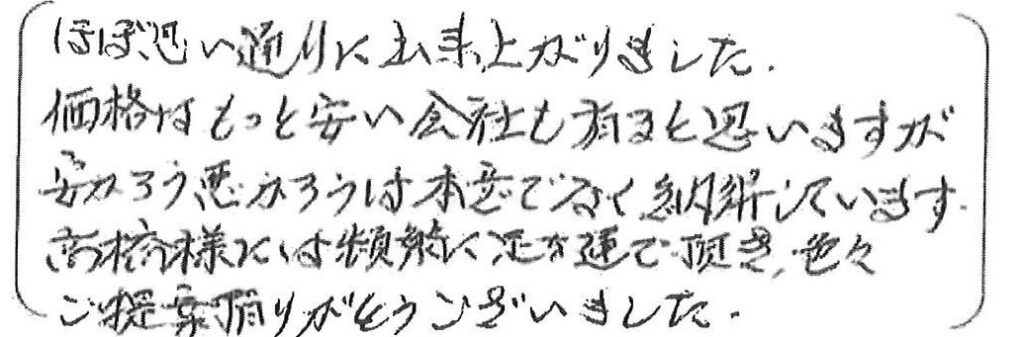 ほぼ思い通りに出来上がりました.
価格はもっと安い会社も有ると思いますが
安かろう悪かろうは本意でなく納得しています.
高橋様には頻繁に足を運で頂き、色々
ご提案頂りがとうございました.